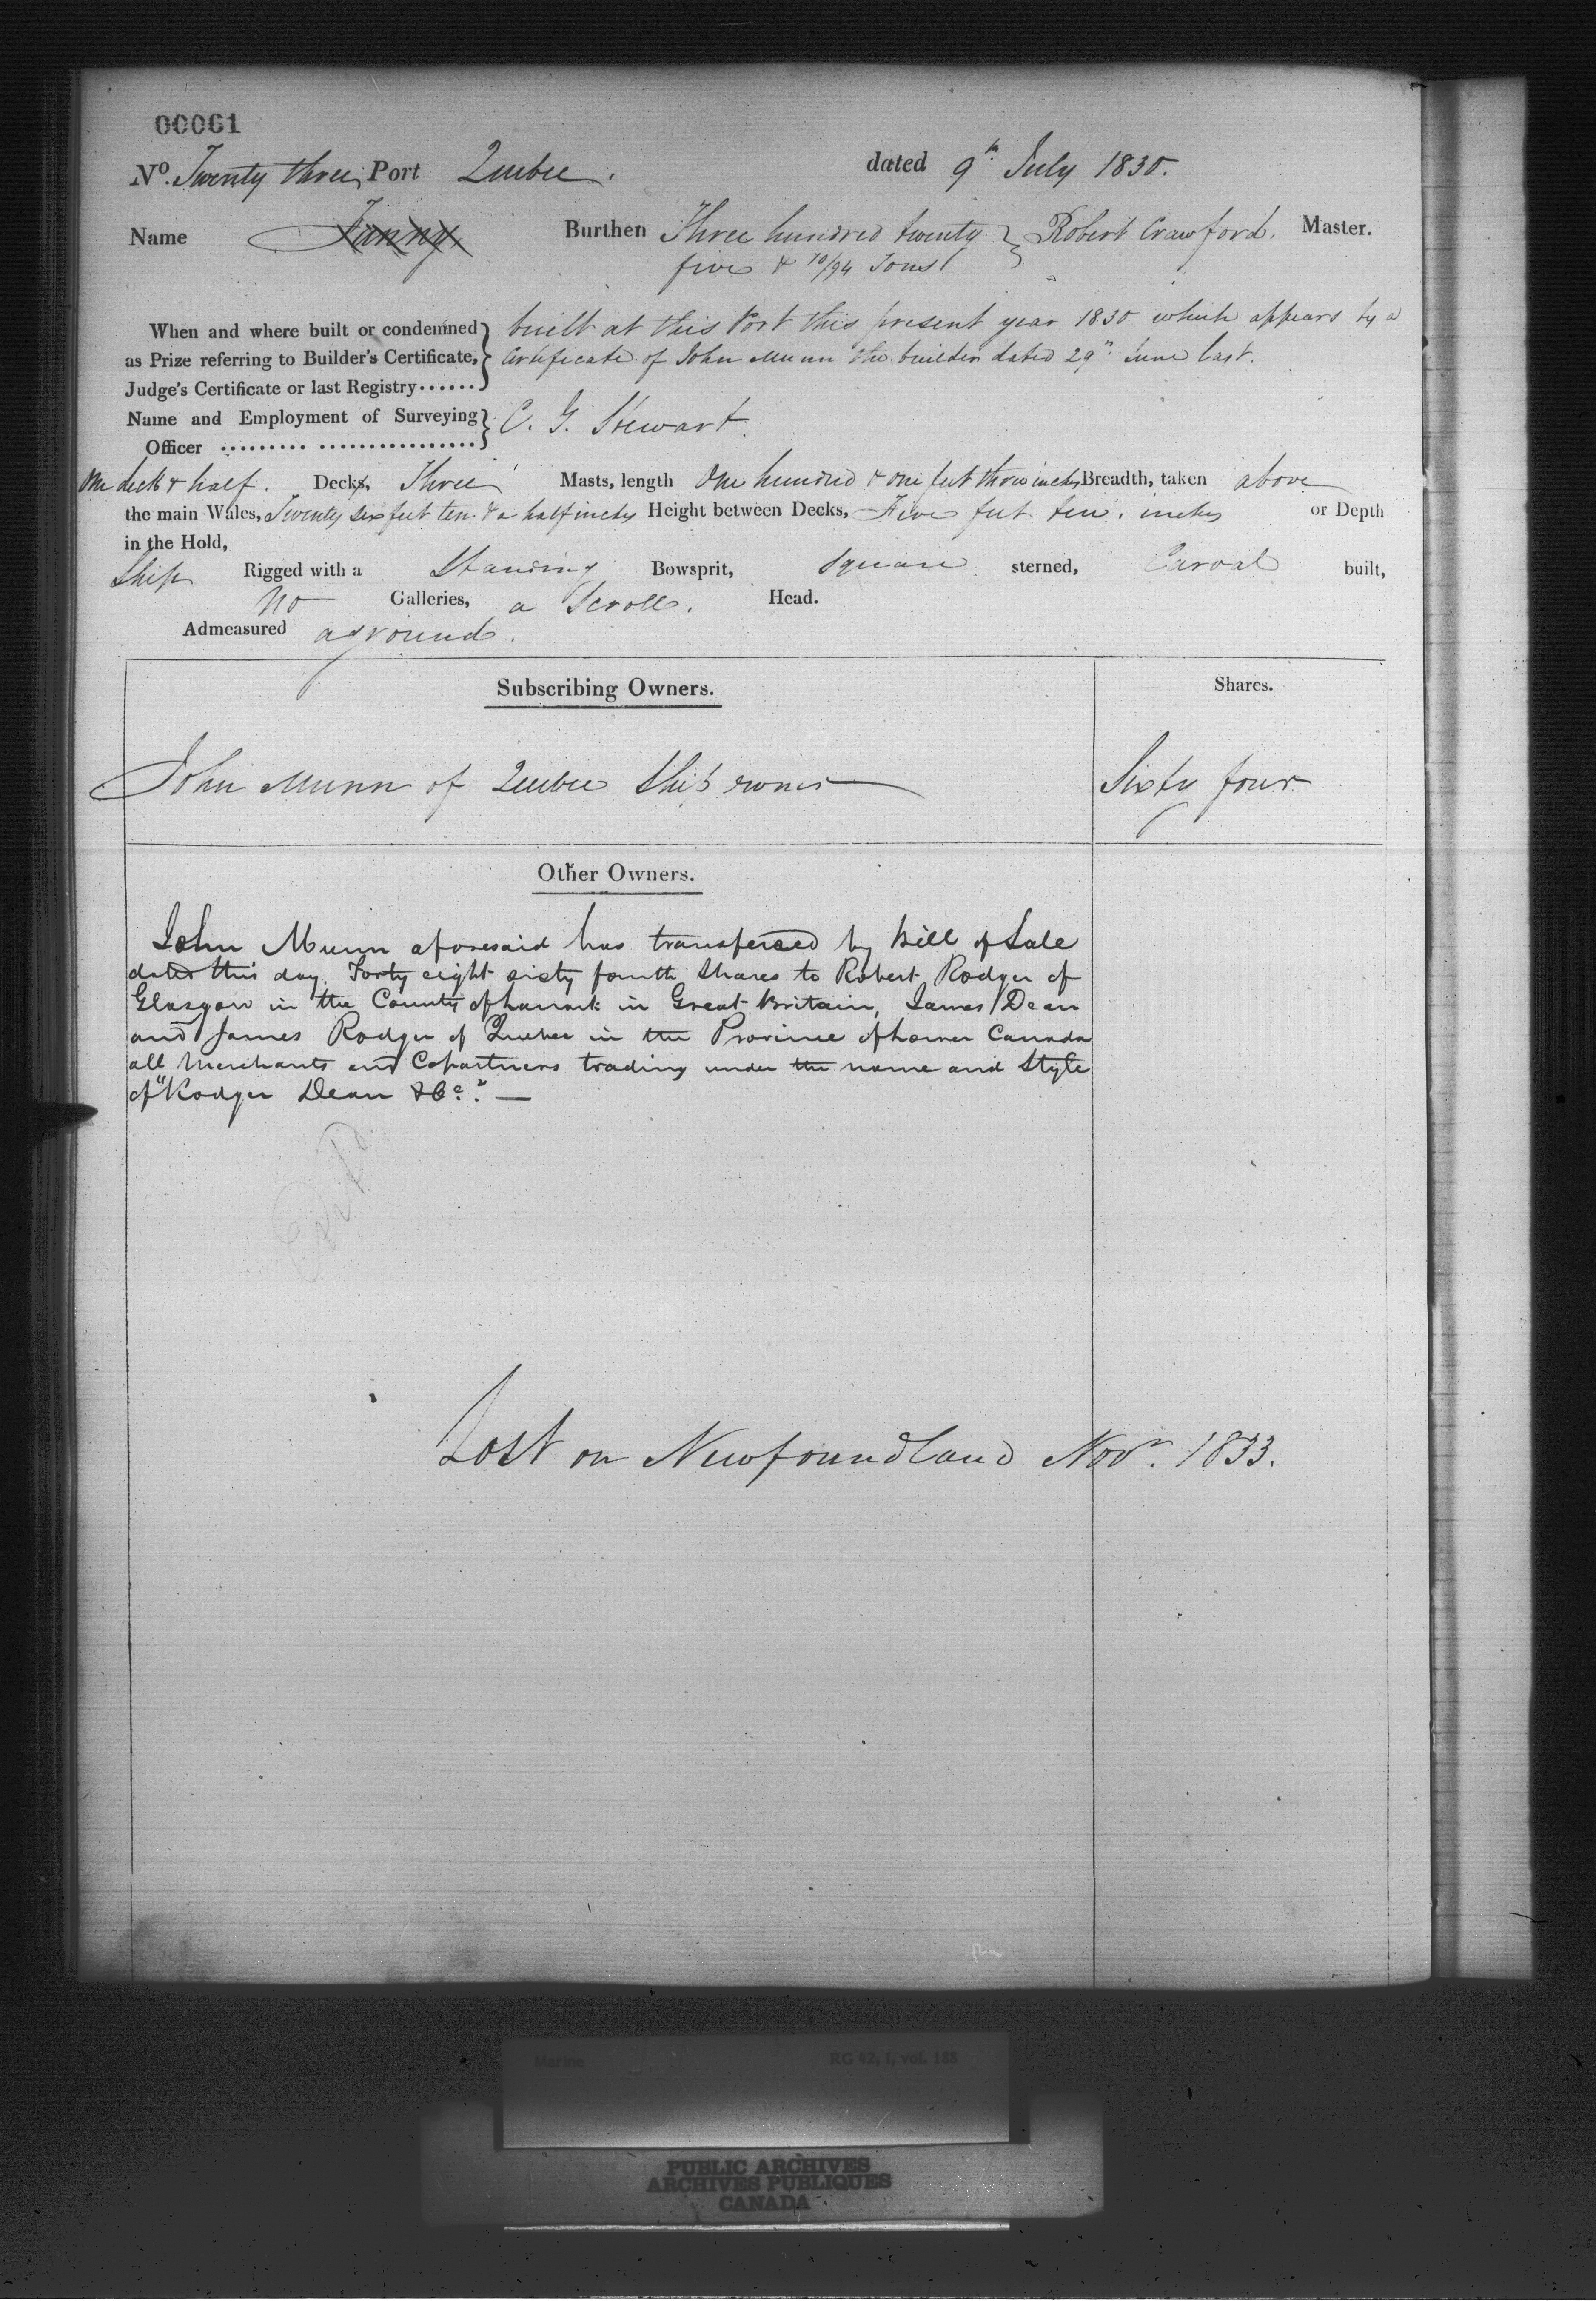 00061
No. Twenty three Port Quebec. dated 9th July 1830.
Name Fanny Burthen Three hundred twenty } Robert Crawford. Master.
five & 10/94 Tons
When and where built or condemned } built at this Port this present year 1830 which appears by a
as Prize referring to Builder's Certificate, Certificate of John Munn the builder dated 29th June last.
Judge's Certificate or last Registry
Name and Employment of Surveying } C. G. Stewart.
Officer
One deck & half. Decks, Three Masts, length One hundred & one feet three inches Breadth, taken above
the main Wales, Twenty six feet ten & a half inches Height between Decks, Five feet ten inches or Depth
in the Hold,
Ship Rigged with a Standing Bowsprit, square sterned, Carval built,
no Galleries, a Scroll. Head.
Admeasured aground.
Subscribing Owners. Shares.
John Munn of Quebec Ship owner Sixty four
Other Owners.
John Munn aforesaid has transfered by Bill of Sale
dated this day. Forty eight sixty fourth Shares to Robert Rodger of
Glasgow in the County of Lanark in Great Britain, James Dean
and James Rodger of Quebec in the Province of Lower Canada
all Merchants and Copartners trading under the name and Style
of "Rodger Dean & Co." —
Lost on Newfoundland Novr. 1833.
Marine RG 42, I, vol. 188
PUBLIC ARCHIVES
ARCHIVES PUBLIQUES
CANADA